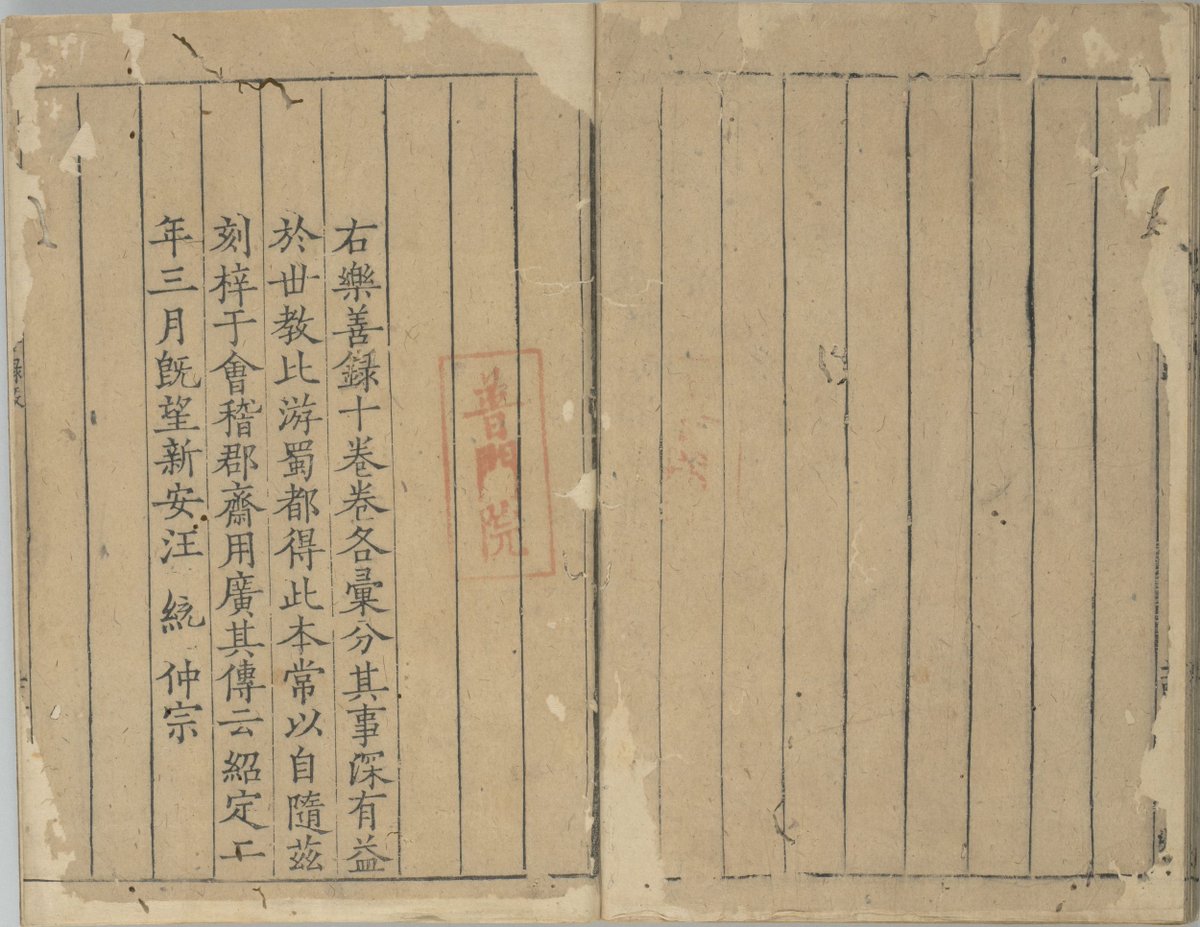 普門院
右樂善録十卷卷各彙分其事深有益
於丗教比游蜀都得此本常以自隨茲
刻梓于會稽郡齋用廣其傳云紹定二
年三月旣望新安汪 統 仲宗